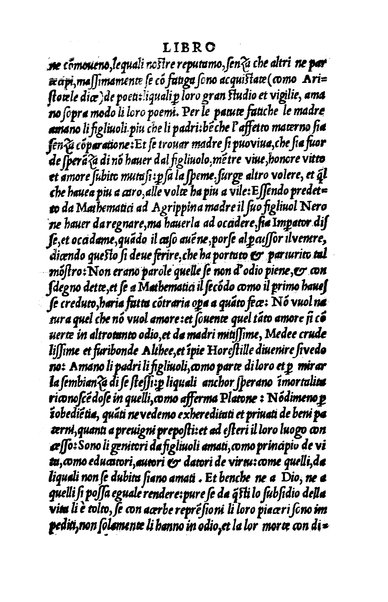 LIBRO
ne cõmoueno, lequali nostre reputamo, senza che altri ne par
tecipi, massimamente se cõ fatiga sono acquistate (como Ari-
stotele dice) de poeti: liquali p loro gran studio et vigilie, ama
no sopra modo li loro poemi. Per le patute fatiche le madre
amano li figliuoli piu che li padri: bẽche l'affetto materno sia
senza cõparatione: Et se trouar madre si puo viua, che sia fuor
de sperãza di nõ hauer dal figliuolo, mẽtre viue, honore vitto
et amore subito mutasi: p sa la speme, surge altro volere, et ql̃
che hauea piu a caro, alle volte ha piu a vile: Essendo predet-
to da Mathematici ad Agrippina madre il suo figliuol Nero
ne hauer da regnare, ma hauerla ad occidere, sia Imp̃ator dis
se, et occidame, quãdo il caso auẽne, porse al pcussor il venere,
dicendo questo si deue ferire, che ha portato & parturito tal
mõstro: Non erano parole quelle se non d'odio piene, & con
sdegno dette, et se a Mathematici il secõdo como il primo haues
se creduto, haria fatta cõtraria opa a quãto fece: Nõ vuol na
tura quel che nõ vuol amore: et souente quel tãto amore si cõ
uerte in altrotanto odio, et da madri mitissime, Medee crude
lissime et furibonde Althee, et ĩpie Horestille diuenire si vedo
no: Amano li padri li figliuoli, como parte di loro et p mirar
la sembianza di se stessi: p liquali anchor sperano ĩmortalita
riconoscẽdose in quelli, como afferma Platone: Nõdimeno p
ĩobediẽtia, quãti ne vedemo exhereditati et priuati de beni pa
terni, quanti a preuigni preposti: et ad esteri il loro luogo con
cesso: Sono li genitori da figliuoli amati, como principio de vi
ta, como educatori, autori & datori de virtu: come quelli, da
liquali non se dubita siano amati. Et benche ne a Dio, ne a
quelli si possa eguale rendere: pure se da q̃sti lo subsidio della
vita li è tolto, se con acerbe reprẽsioni li loro piaceri sono im
pediti, non solamente li hanno in odio, et la lor morte con di-